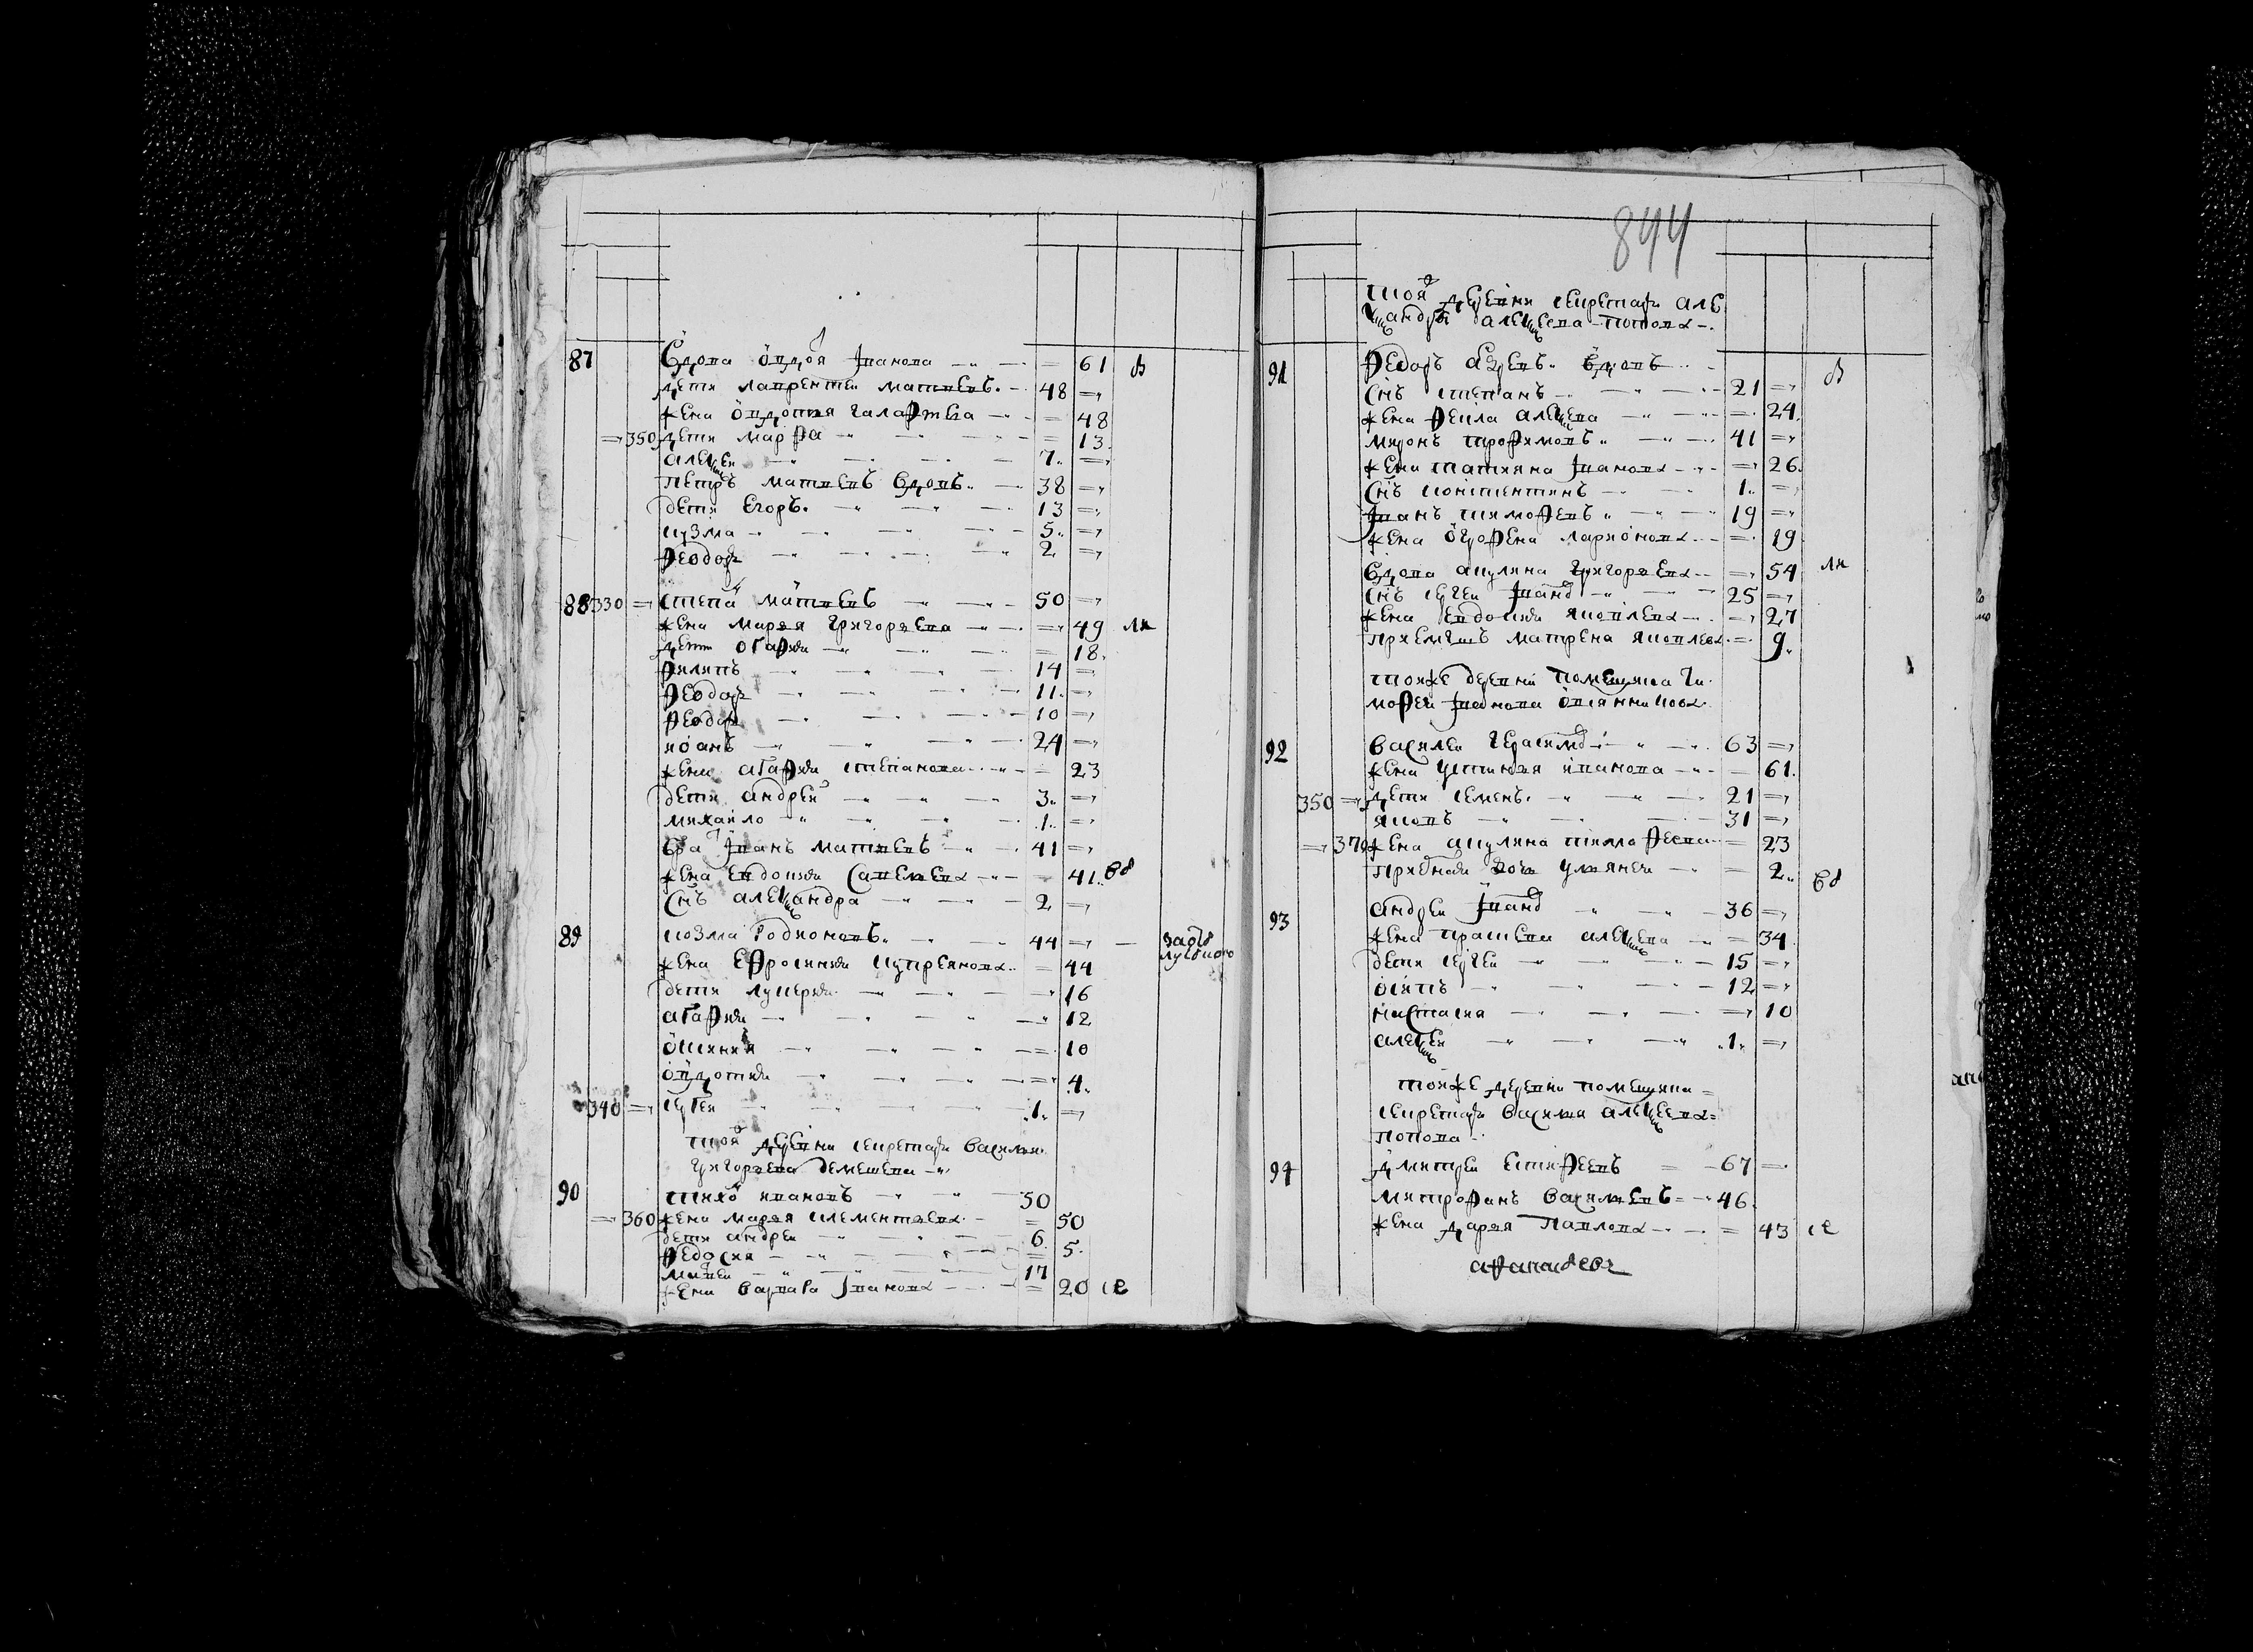 87 Вдова Овдотя Іванова = 61 в
дети Лаврентеи Матвеевъ 48 =
жена Овдотия = 48
= 350 дети Марфа = 13
Алексеи 7 =
Петръ Матвеевъ вдовъ 38 =
дети Егоръ 13 =
Кузма 5 =
Феодоръ 2 =
88 330 = Степанъ Матвеевъ 50 =
жена Маръя Григоръева = 49
дети Огафия = 18
Филипъ 14 =
Феодоръ 11 =
Феодоръ 10 =
Иоанъ 24 =
жена Агафия Степанова = 23
дети Андреи 3 =
Михаило 1 =
Братъ Іванъ Матвеевъ 41 =
жена Евдокия Савелева = 41
Снъ Александра 2 =
89 Козма Родионовъ 44 =
жена Ефросиния Купреянова = 44
дети Лукерия = 16
Агафия = 12
= 10
Овдотия = 4
340 = Сергеи 1 =
той деревни секретаря Василия
Григоръева Демешева
90 Тихо Ивановъ 50
= 360 жена Маръя Клементъева = 50
дети Андреи 6
Федосия = 5
Матвеи 17
жена Варвара Іванова = 20
844
той деревни секретаря Але
ксандра Алексеева Попова
91 Федоръ вдовъ в
Снъ Степанъ 21 =
жена Фекла Алексеева = 24
Миронъ Трофимовъ 41 =
жена Татияна Іванова = 26
Снъ Констентинъ 1 =
Іванъ Тимофеевъ 19 =
жена Огрофена Ларионова = 19
Вдова Акулина Григоръева = 54
Снъ Сергеи Іванов 25 =
жена Евдокия Яковлева = 27
приемышъ Матрена Яковлева = 9
тояже деревни помещика Ти
мофеи Іванова
92 Василеи Герасимов 63 =
жена Устинъя Иванова = 61
350 = дети Семенъ 21 =
Яковъ 31 =
= 370 жена Акулина Тимофеева = 23
дочь Ульянея = 2
93 Андреи Іванов 36 =
жена Прасковя Алексеева = 34
дети Сергеи 15 =
Осипъ 12 =
Настасия = 10
Алексеи 1 =
тояже деревни помещика
секретаря Василия Алексеева
Попова
94 Дмитреи Естифеевъ 67 =
Митрофанъ Василъевъ 46
жена Даръя Павлова = 43